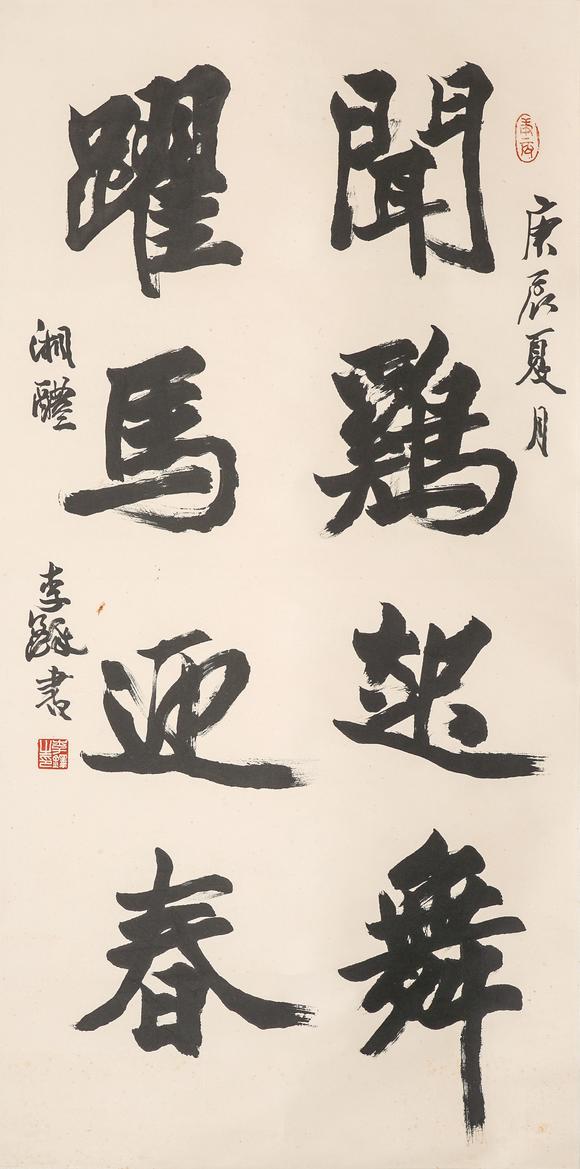 庚辰夏月
聞鷄起舞
躍馬迎春
湘醴
李鐸書